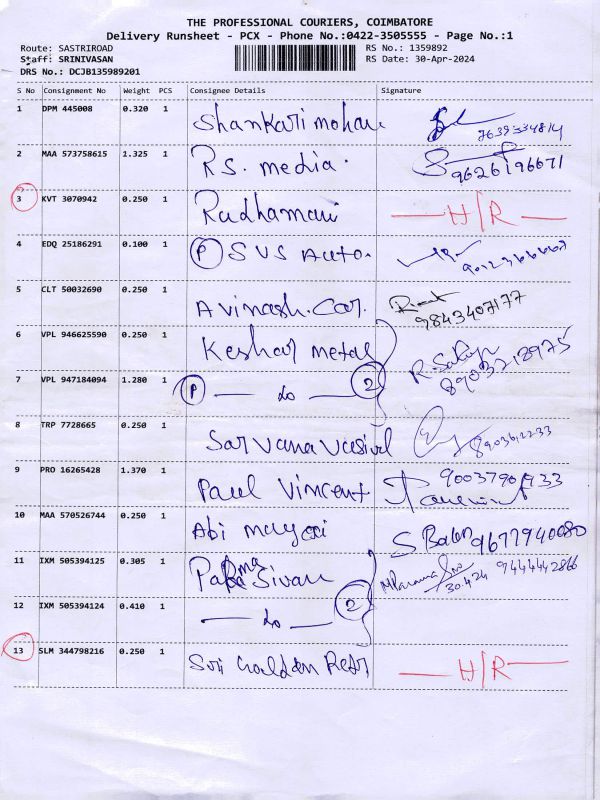 THE PROFESSIONAL COURIERS, COIMBATORE
Delivery Runsheet - PCX - Phone No.:0422-3505555 - Page No.:1
Route: SASTRIROAD RS No.: 1359892
Staff: SRINIVASAN RS Date: 30-Apr-2024
DRS No.: DCJB135989201
S No Consignment No Weight PCS Consignee Details Signature
1 DPM 445008 0.320 1 Shankari mohan 7639334814
2 MAA 573758615 1.325 1 R.S. media. 9626196671
3 KVT 3070942 0.250 1 Radhamani H/R
4 EDQ 25186291 0.100 1 P SVS Auto.
5 CLT 50032690 0.250 1 Avinash. Car. 9843407177
6 VPL 946625590 0.250 1 Keshar metal
7 VPL 947184094 1.280 1 P — do — 2 8903218975
8 TRP 7728665 0.250 1 Sarvana
9 PRO 16265428 1.370 1 Paul Vincent
10 MAA 570526744 0.250 1 Abi S. Balan 9677940080
11 IXM 505394125 0.305 1 Sivan 30.4.24 9444442866
12 IXM 505394124 0.410 1 — do — 2
13 SLM 344798216 0.250 1 Sri H/R